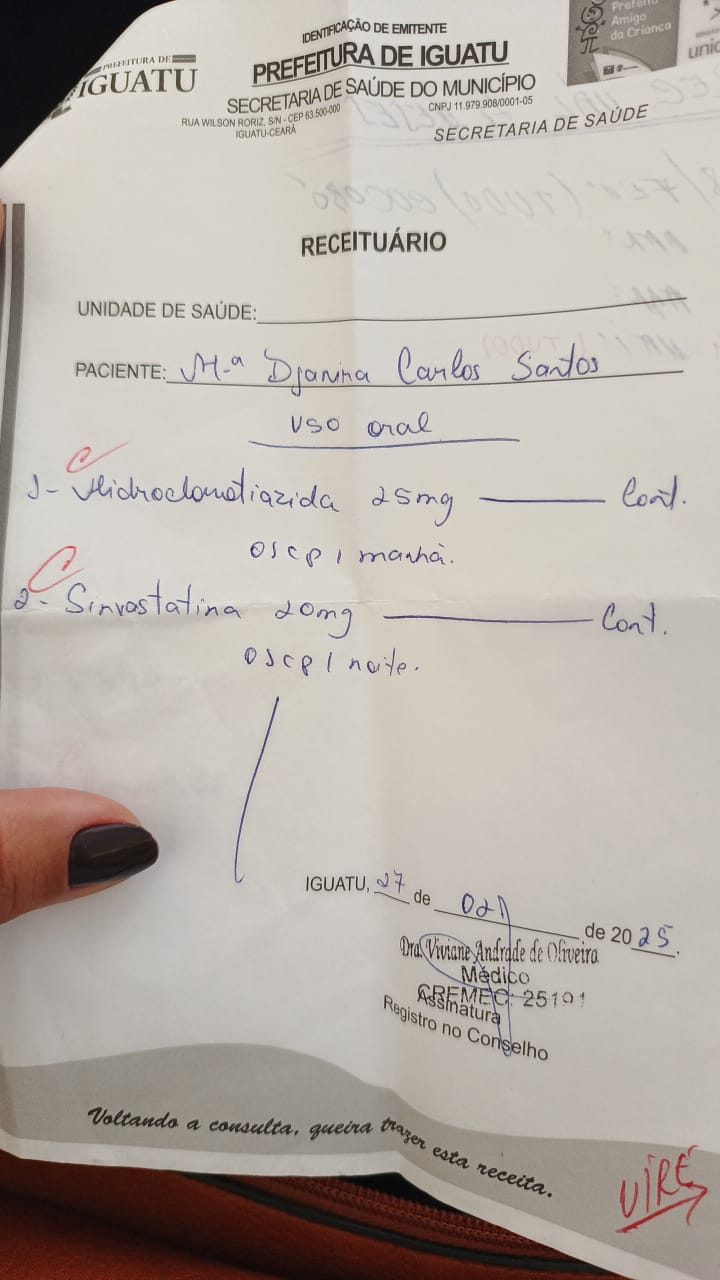 PREFEITURA DE
IGUATU
IDENTIFICAÇÃO DE EMITENTE
PREFEITURA DE IGUATU
SECRETARIA DE SAÚDE DO MUNICÍPIO
RUA WILSON RORIZ, S/N - CEP 63.500-000
CNPJ 11.979.908/0001-05
IGUATU-CEARÁ
SECRETARIA DE SAÚDE
Amigo
da Criança
RECEITUÁRIO
UNIDADE DE SAÚDE:
PACIENTE: Mª Djanina Carlos Santos
uso oral
C
1- Hidroclorotiazida 25mg Cont.
manhã.
C
2- Sinvastatina 20mg Cont.
noite.
IGUATU, 27 de de 2025.
Dra. Viviane Andrade de Oliveira
Médico
CREMEC: 25191
Assinatura
Registro no Conselho
Voltando a consulta, queira trazer esta receita.
VIRE